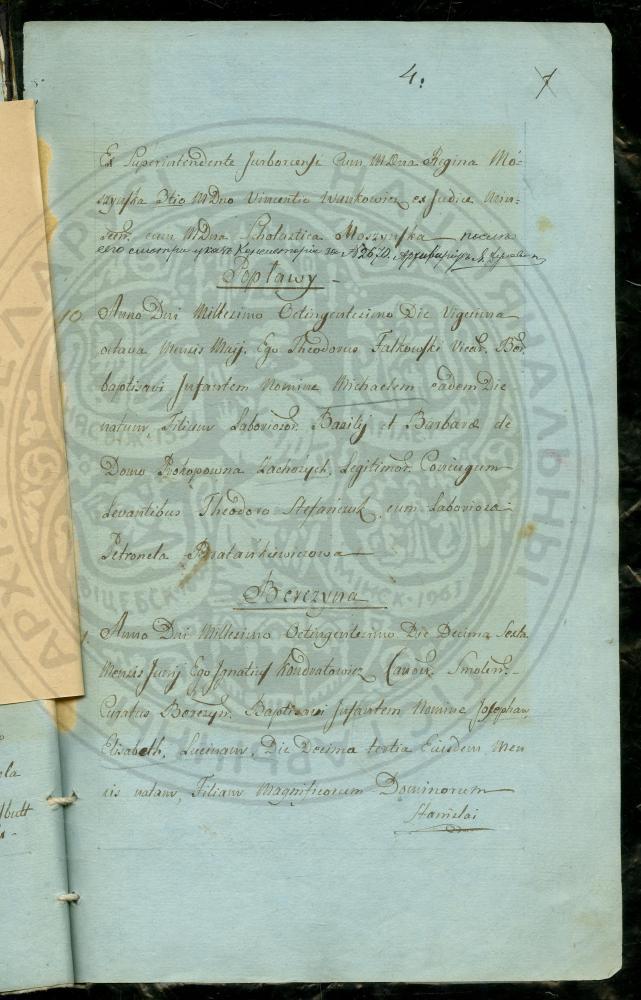 4. 7
Ex Superintendente Jurborcensi Cum MDna Regina Mo-
szyńska 3tio MDno Vincentio Wankowicz ex Judice Min-
cum MDna Scholastica Moszyńska после
сего смотри указ Консистории за №2670. Архиваріусъ
Popławy
10 Anno Dni Millesimo Octingentesimo Die Vigesima
octava Mensis Maij. Ego Theodorus Falkowski Vicar. Ber.
baptisavi Infantem Nomine Michaelem eadem Die
natum, Filium Laborioror. Bazilij et Barbaræ de
Domo Prokopowna Zachorzych, Legitimor. Coniugum
Levantibus Theodoro Stefańczuk, cum Laboriosa
Petronela Bratańkiewiczowa
Berezyna
Anno Dni Millesimo Octingentesimo Die Decima Sexta
Mensis Junij Ego Ignatius Kondratowicz Canon. Smolen.
Curatus Berezyn. Baptisavi Infantem Nomine Josepham,
Elisabeth, Lucinam, Die Decima tertia Ejusdem Men
sis natam, Filiam Magnificorum Dominorum
Stanislai